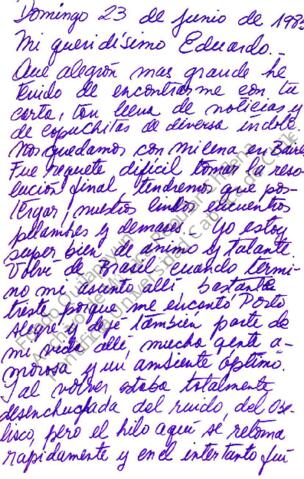 Domingo 23 de junio de 198
Mi queridísimo Eduardo._
Que alegrón mas grande he
tenido de encontrarme con tu
carta, tan llena de noticias y
de copuchitas de diversa índole
Nos quedamos con milena en Baires
Fue requete difícil tomar la reso-
lución final, tendremos que pos-
tergar, nuestros lindos encuentros
pelambres y demases._ Yo estoy
super bien de ánimo y talante.
Volvi de Brasil cuando termi-
nó mi asunto allí, bastante
triste porque me encantó Porto
Alegre y dejé también parte de
mi vida allé, mucha gente a-
morosa y un ambiente óptimo.
Y al volver, estaba totalmente
desenchufada del ruido, del obe-
lisco, pero el hilo aquí se retoma
rapidamente y en el intertanto fuí